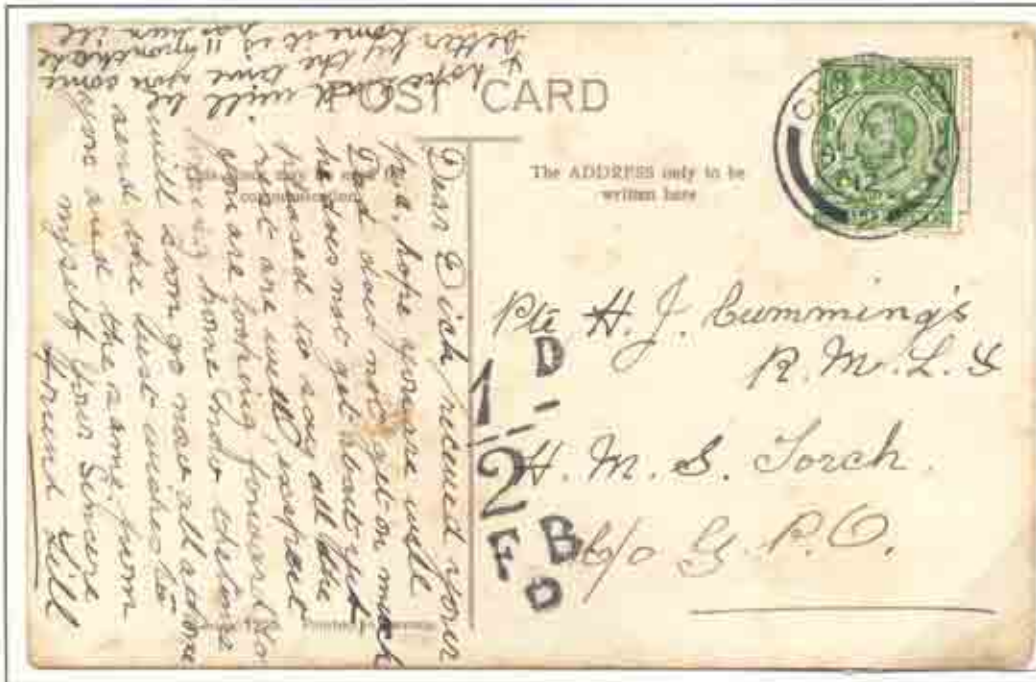 POST CARD
The ADDRESS only to be
written here
Pte H. J. Cummings
R. M. L. I
H. M. S. Torch.
c/o G. P. O.
1D
-
2
F.B
O
Dear Dick received your
p.c. hope you are well
Dad does not get on much
he does not get about yet
pleased to say all the
rest are well, expect
you are looking forward to
coming home the time
will soon go now all at home
send the best wishes to
you and the same from
myself your Sincere
friend Lill
I hope Dad will be
better by the time you come
home it is 11 months
has been ill